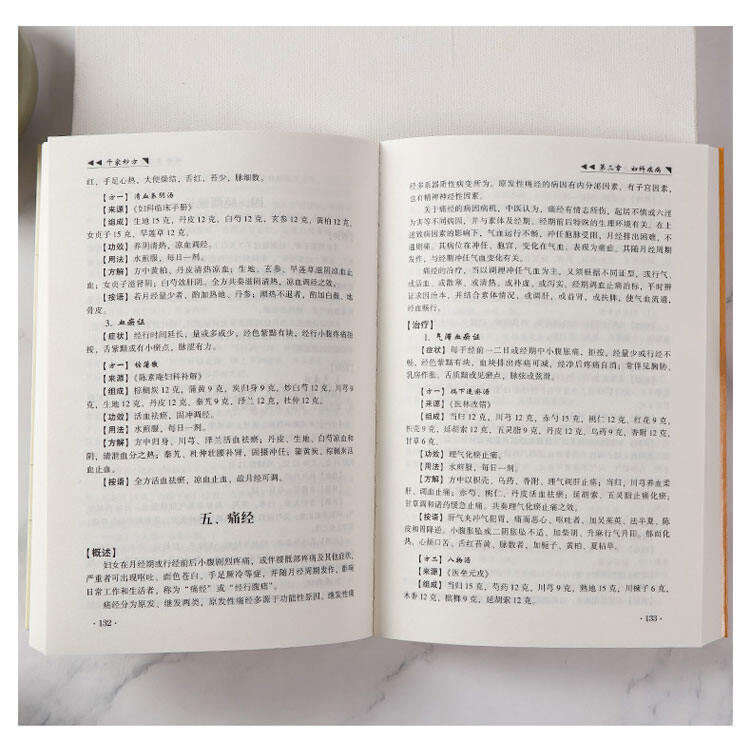 千家妙方
红，手足心热，大便燥结，舌红，苔少，脉细数。
【方一】清血养阴汤
【来源】《妇科临床手册》
【组成】生地 15 克，丹皮 12 克，白芍 12 克，玄参 12 克，黄柏 12 克，
女贞子 15 克，旱莲草 12 克。
【功效】养阴清热，凉血调经。
【用法】水煎服，每日一剂。
【方解】方中黄柏、丹皮清热凉血；生地、玄参、旱莲草滋阴凉血止
血；女贞子滋肾阴；白芍敛肝阴。全方共奏滋阴清热，凉血调经之效。
【按语】若月经量少者，酌加熟地、丹参；潮热不退者，酌加白薇、地
骨皮。
3. 血瘀证
【症状】经行时间延长，量或多或少，经色紫黯有块，经行小腹疼痛拒
按，舌紫黯或有小瘀点，脉涩有力。
【方一】棕蒲散
【来源】《陈素庵妇科补解》
【组成】棕榈炭 12 克，蒲黄 9 克，炭归身 9 克，炒白芍 12 克，川芎 9
克，生地 12 克，丹皮 12 克，秦艽 9 克，泽兰 12 克，杜仲 12 克。
【功效】活血祛瘀，固冲调经。
【用法】水煎服，每日一剂。
【方解】方中归身、川芎、泽兰活血祛瘀；丹皮、生地、白芍凉血和
阴，清泄血分之热；秦艽、杜仲壮腰补肾，固摄冲任；蒲黄炭、棕榈炭活
血止血。
【按语】全方活血祛瘀，凉血止血，故月经可调。
五、痛经
【概述】
妇女在月经期或行经前后小腹剧烈疼痛，或伴腰骶部疼痛及其他症状，
严重者可出现呕吐、面色苍白、手足厥冷等症，并随月经周期发作，影响
日常工作和生活者，称为“痛经”或“经行腹痛”。
痛经分为原发、继发两类，原发性痛经多源于功能性原因，继发性痛
· 132 ·
第二章 妇科疾病
经多系器质性病变所为。原发性痛经的病因有内分泌因素，有子宫因素，
也有精神神经性因素。
关于痛经的病因病机，中医认为，痛经有情志所伤，起居不慎或六淫
为害等不同病因，并与素体及经期、经期前后特殊的生理环境有关。在上
述致病因素的影响下，气血运行不畅，冲任胞脉受阻，月经排出困难，不
通则痛。其病位在冲任、胞宫，变化在气血，表现为痛症。其随月经周期
发作，与经期冲任气血变化有关。
痛经的治疗，当以调理冲任气血为主，又须根据不同证型，或行气，
或活血，或散寒，或清热，或补虚，或泻实。经期调血止痛治标，平时辨
证求因治本，并结合素体情况，或调肝，或益肾，或扶脾，使气血流通，
经血畅行。
【治疗】
1. 气滞血瘀证
【症状】每于经前一二日或经期中小腹胀痛，拒按，经量少或行经不
畅，经色紫黯有块，血块排出疼痛可减，经净后疼痛自消；常伴见胸胁、
乳房作胀，舌质紫黯或见瘀点，脉弦或弦滑。
【方一】膈下逐瘀汤
【来源】《医林改错》
【组成】当归 12 克，川芎 12 克，赤芍 15 克，桃仁 12 克，红花 9 克，
枳壳 9 克，延胡索 12 克，五灵脂 9 克，丹皮 12 克，乌药 9 克，香附 12 克，
甘草 6 克。
【功效】理气化瘀止痛。
【用法】水煎服，每日一剂。
【方解】方中以枳壳、乌药、香附、理气调肝止痛；当归、川芎养血柔
肝、调血止痛；赤芍、桃仁、丹皮活血祛瘀；延胡索、五灵脂止痛化瘀；
甘草调和诸药缓急止痛。共奏理气化瘀止痛之效。
【按语】肝气夹冲气犯胃，痛而恶心、呕吐者，加吴茱萸、法半夏、陈
皮和胃降逆。小腹胀坠或二阴胀坠不适，加柴胡、升麻行气升阳。郁而化
热，心烦口苦、舌红苔黄、脉数者，加栀子、黄柏、夏枯草。
【方二】八物汤
【来源】《医垒元戎》
【组成】当归 15 克，芍药 12 克，川芎 9 克，熟地 15 克，川楝子 6 克，
木香 12 克，槟榔 9 克，延胡索 12 克。
· 133 ·